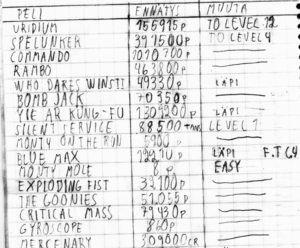 PELI ENNÄTYS MUUTA
URIDIUM 155915p TO LEVEL 12
SPELUNKER 391500p TO LEVEL 4
COMMANDO 1010700p
RAMBO
WHO DARES WINS II 49330p LÄPI
BOMB JACK 70350p
YIE AR KUNG-FU LÄPI
SILENT SERVICE 88500 LEVEL 1
MONTY ON THE RUN
BLUE MAX LÄPI F.T C4
MONTY MOLE EASY
EXPLODING FIST 32100p
THE GOONIES 51055p
CRITICAL MASS 79430p
GYROSCOPE
MERCENARY 309000CR